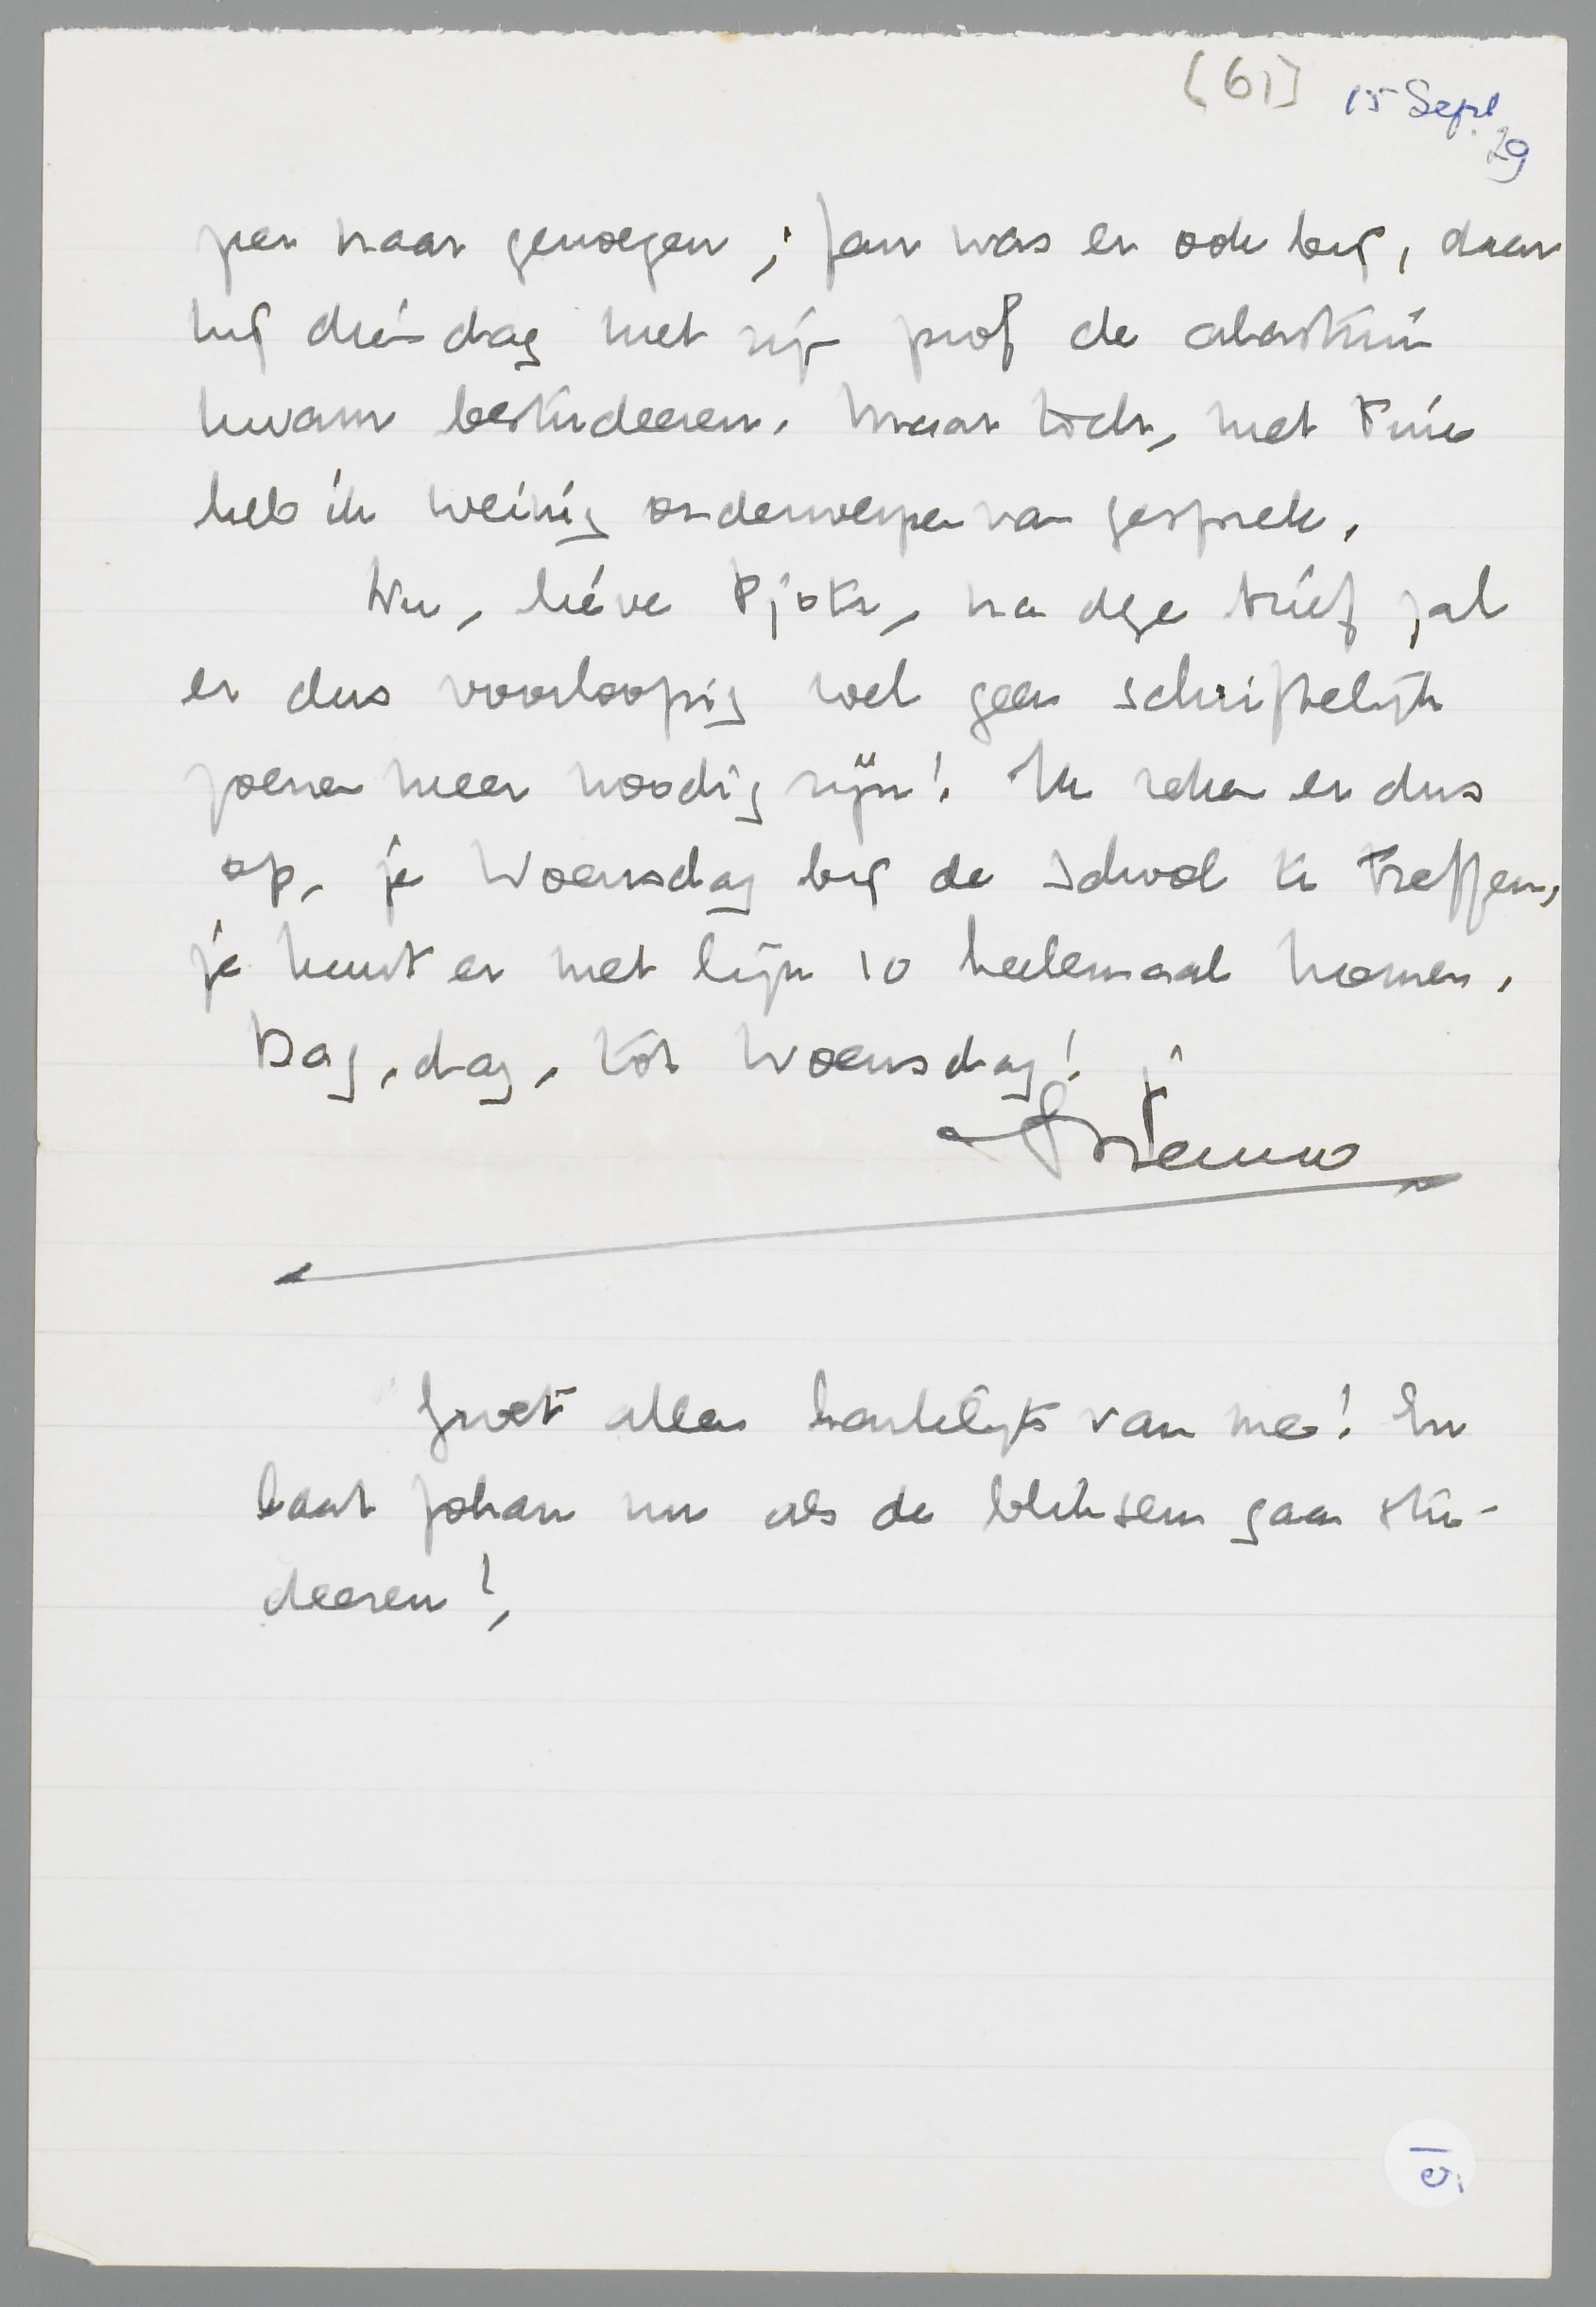 [61] 15 Sept.
29
pen naar genoegen; Jan was er ook bij, daar
hij die dag met zijn prof de
kwam bestudeeren. Maar toch, met
heb ik weinig onderwerpen van gesprek.
Nu, lieve Tjots, na deze brief zal
er dus voorloopig wel geen schriftelijk
zoenen meer noodig zijn! Ik reken er dus
op, je Woensdag bij de school te treffen,
je kunt er met lijn 10 heelemaal komen.
Dag, dag, tot Woensdag! je
Menno
Groet allen hartelijk van me! En
laat Johan nu als de bliksem gaan stu-
deeren!
15